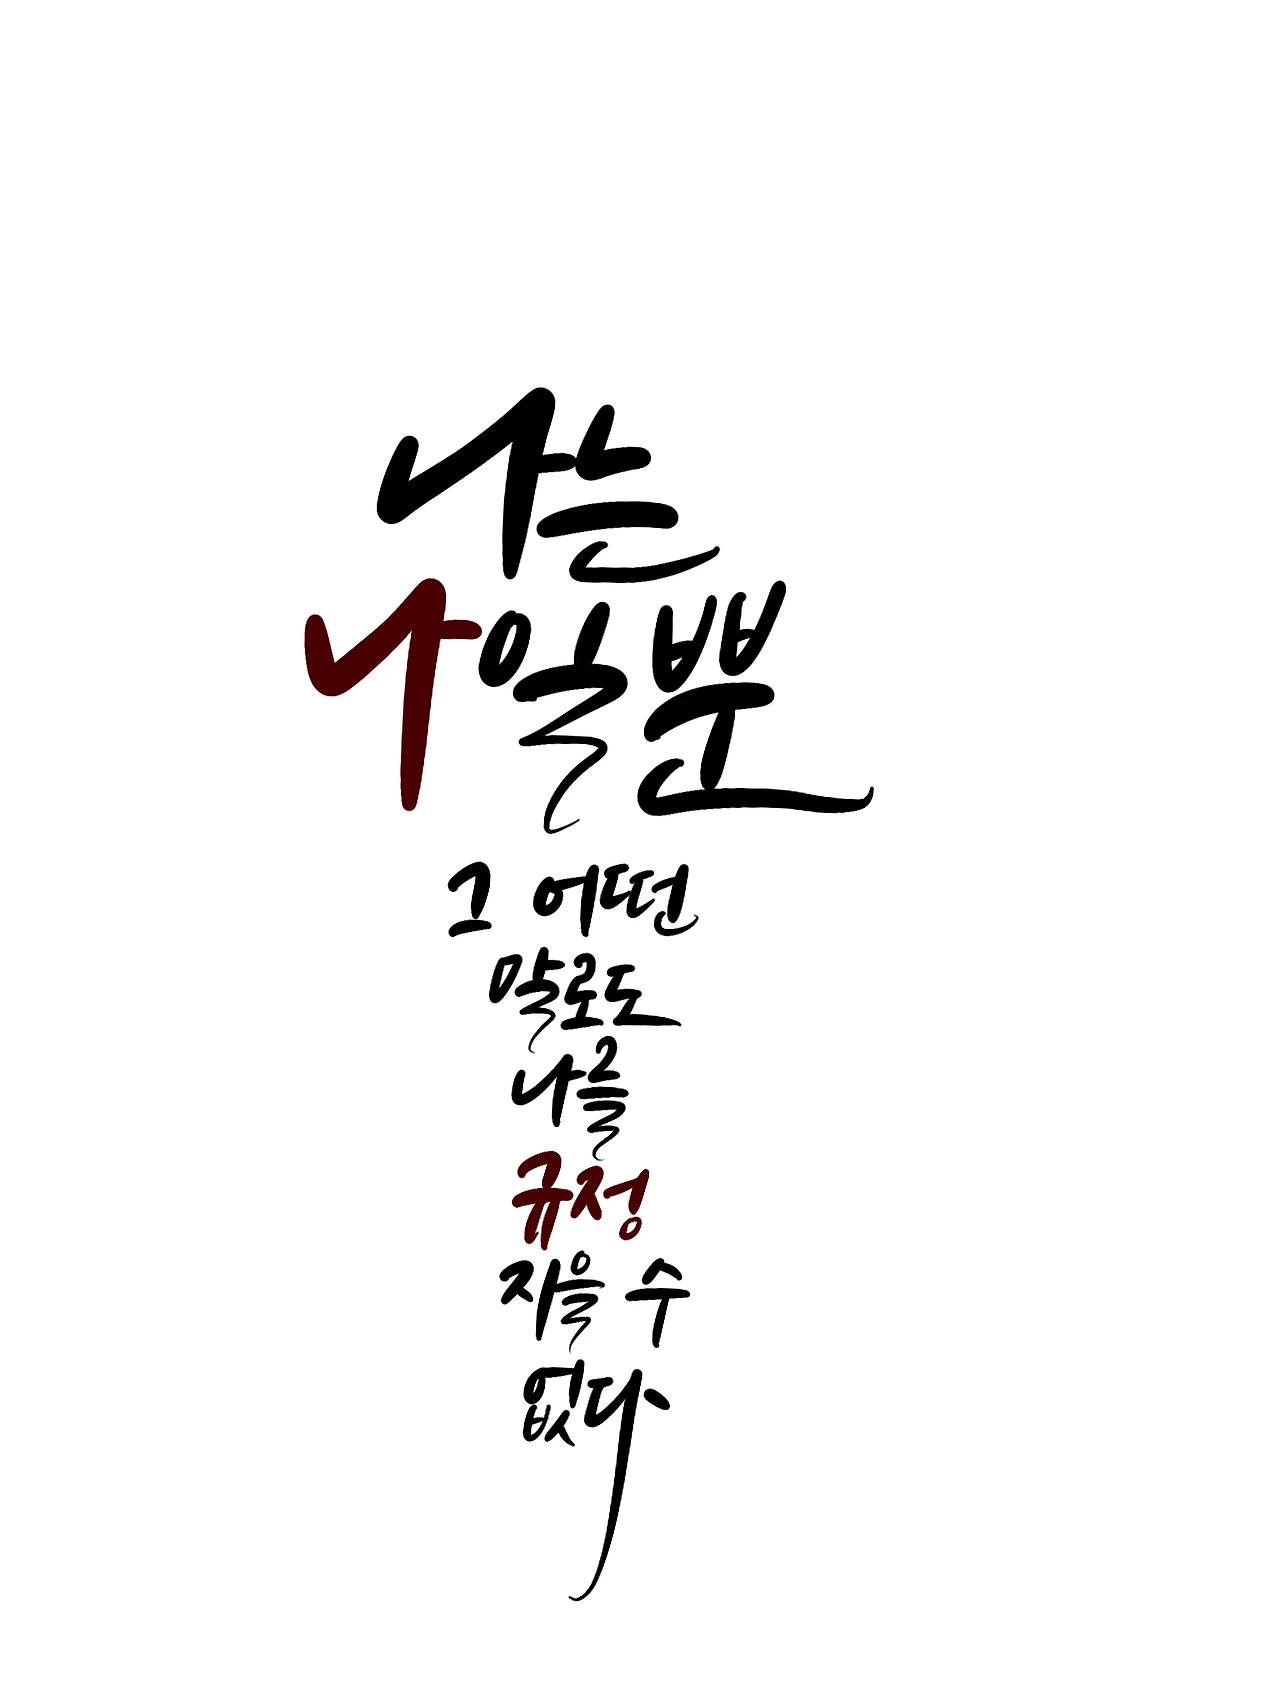 나는
나일뿐
그 어떤
말로도
나를
규정
지을 수
없다